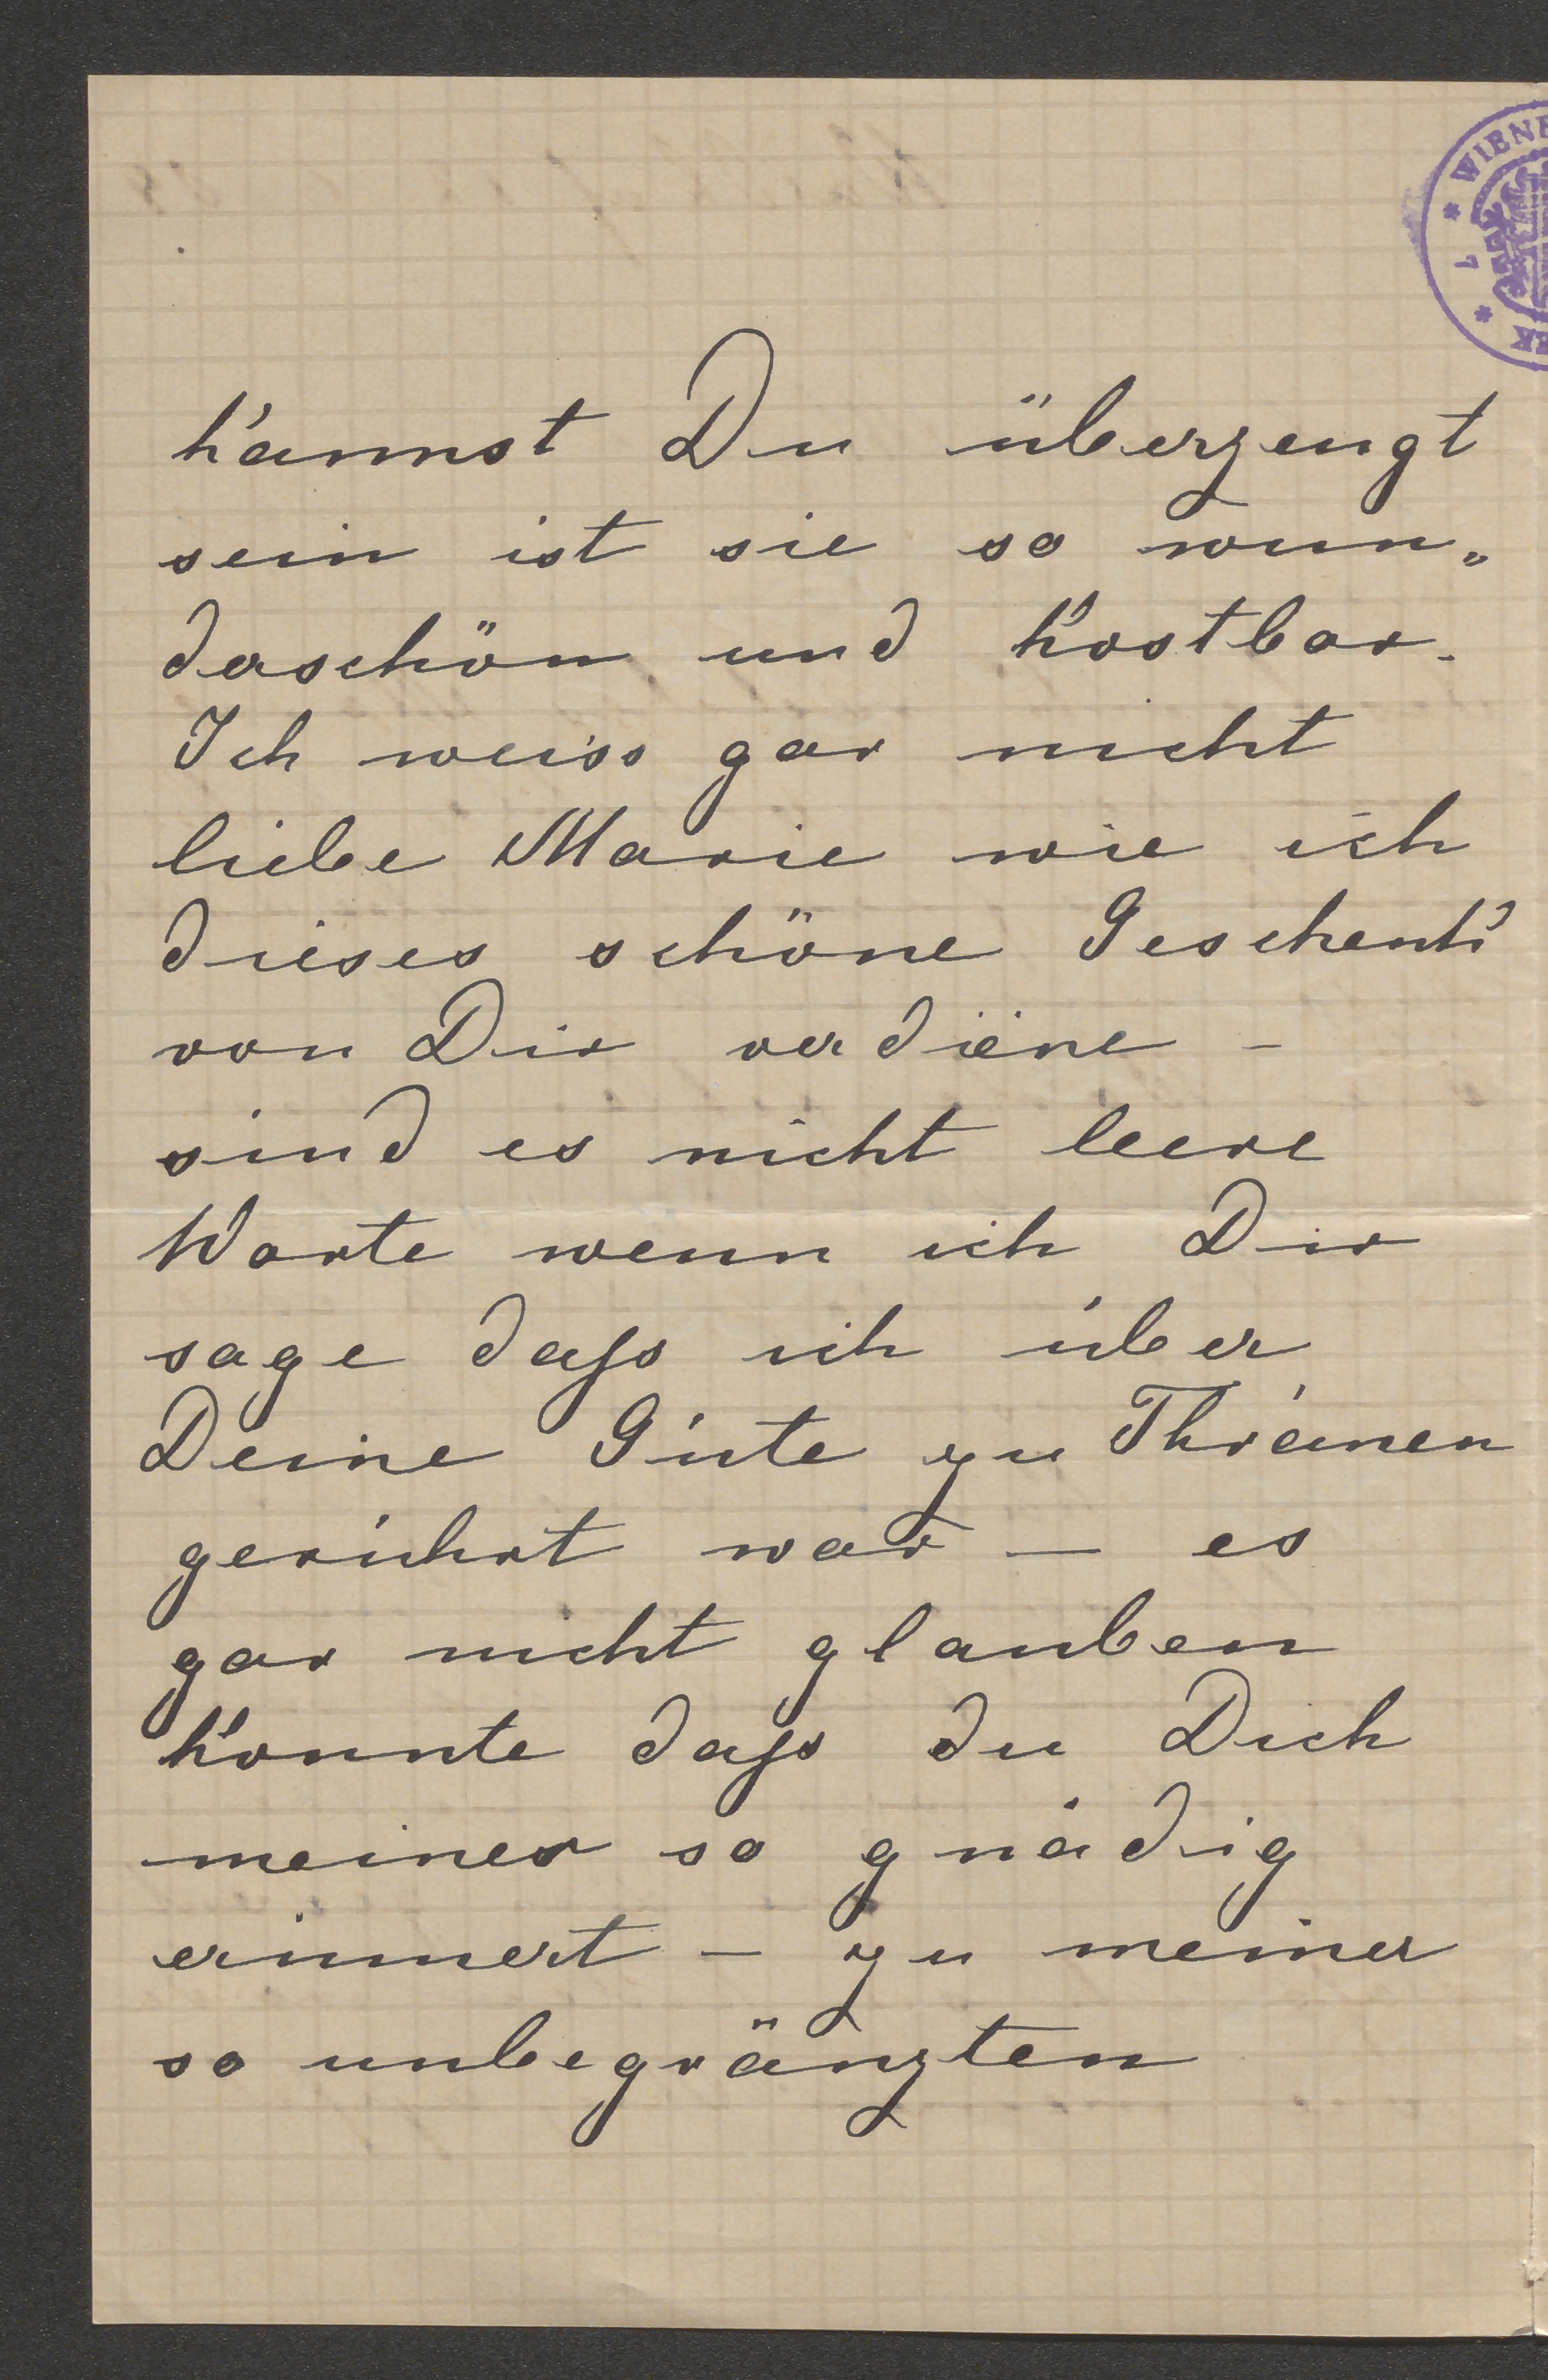 WIENE
7
EK
kannst Du überzeugt
sein ist sie so wun„
derschön und kostbar.
Ich weiss gar nicht
liebe Marie wie ich
dieses schöne Geschenk
von Dir verdiene –
sind es nicht leere
Worte wenn ich Dir
sage dass ich über
Deine Güte zu Thränen
gerührt war – es
gar nicht glauben
konnte dass du Dich
meiner so gnädig
erinnert – zu meiner
so unbegränzten